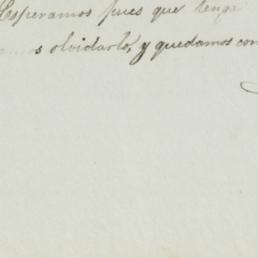 Esperamos pues que tenga
os olvidarlo, y quedamos con